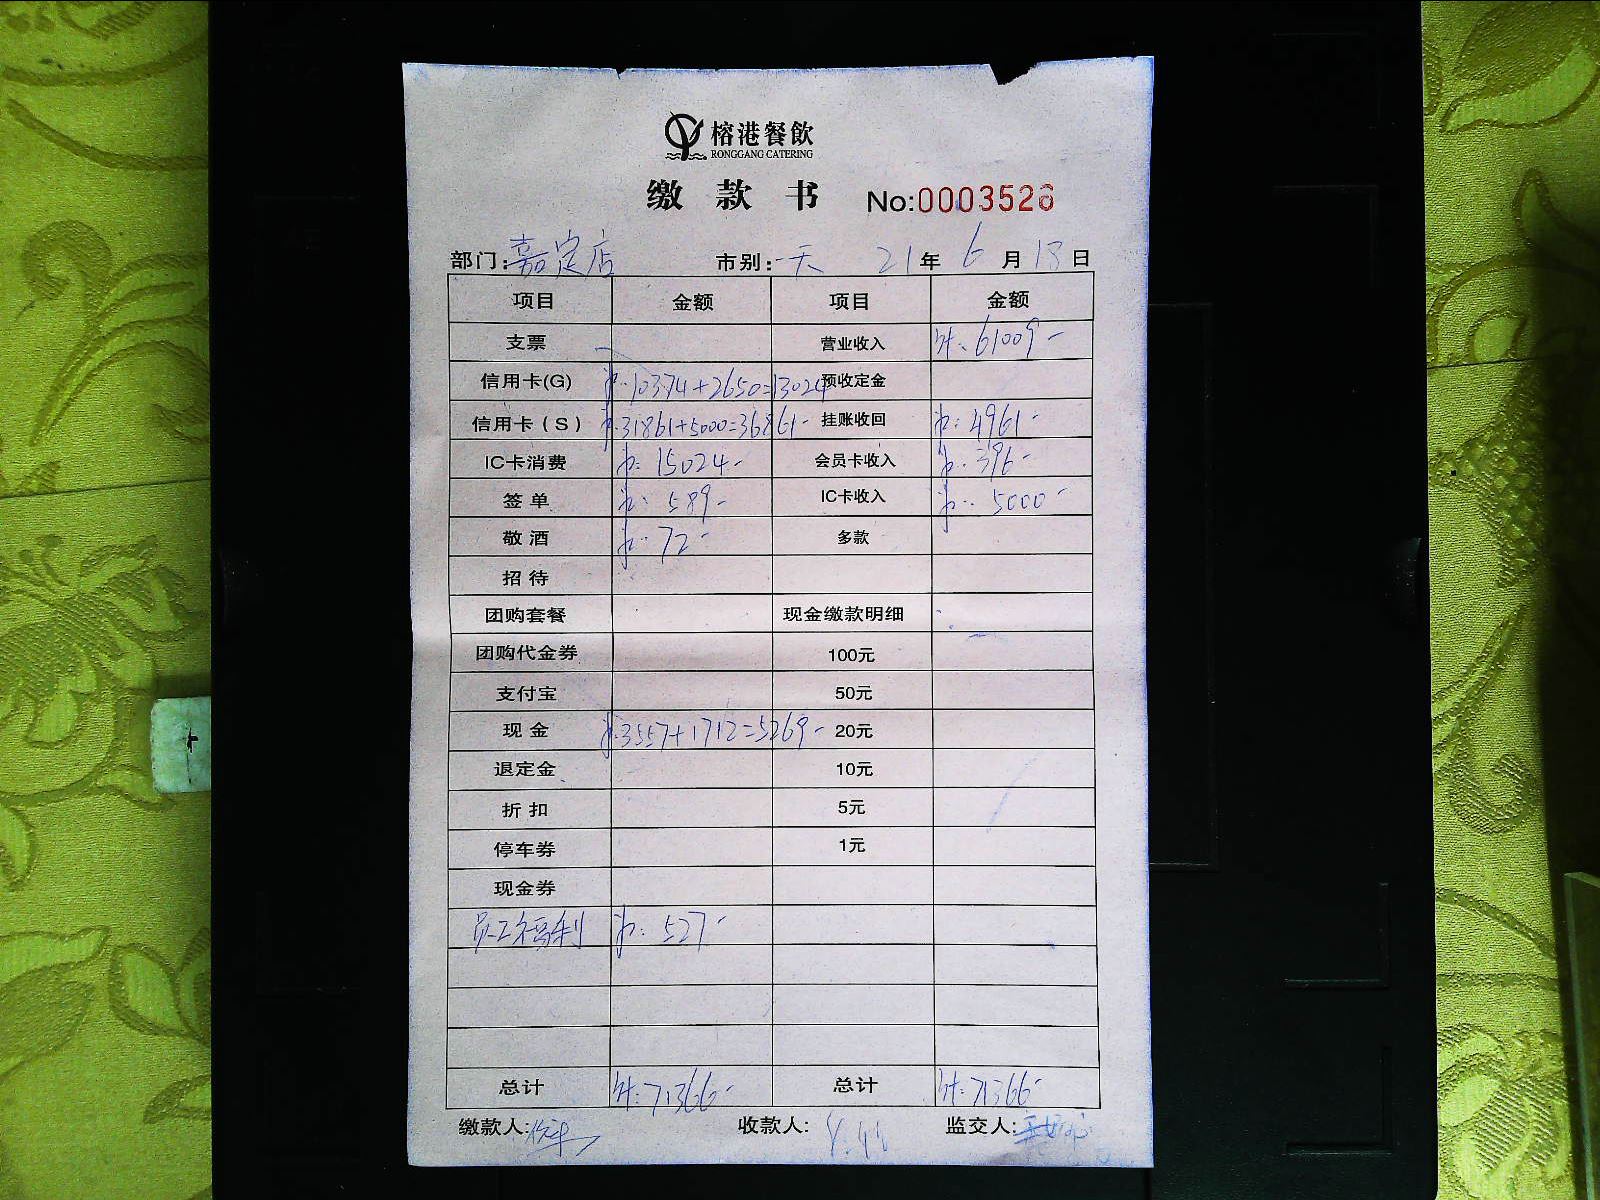 榕港餐飲
RONGGANG CATERING
缴款书 No:0003526
部门:嘉定店 市别:一天 21年6月13日
项目 金额 项目 金额
支票 营业收入 计:61009-
信用卡(G) 10374+2650=13024 预收定金
信用卡(S) 31861+5000=36861- 挂账收回 4961-
IC卡消费 15024- 会员卡收入 396-
签单 589- IC卡收入 5000-
敬酒 72- 多款
招待
团购套餐 现金缴款明细
团购代金券 100元
支付宝 50元
现金 3557+1712=5269- 20元
退定金 10元
折扣 5元
停车券 1元
现金券
员工福利 527-
总计 计:71366- 总计 计:71366-
缴款人: 收款人: 监交人: